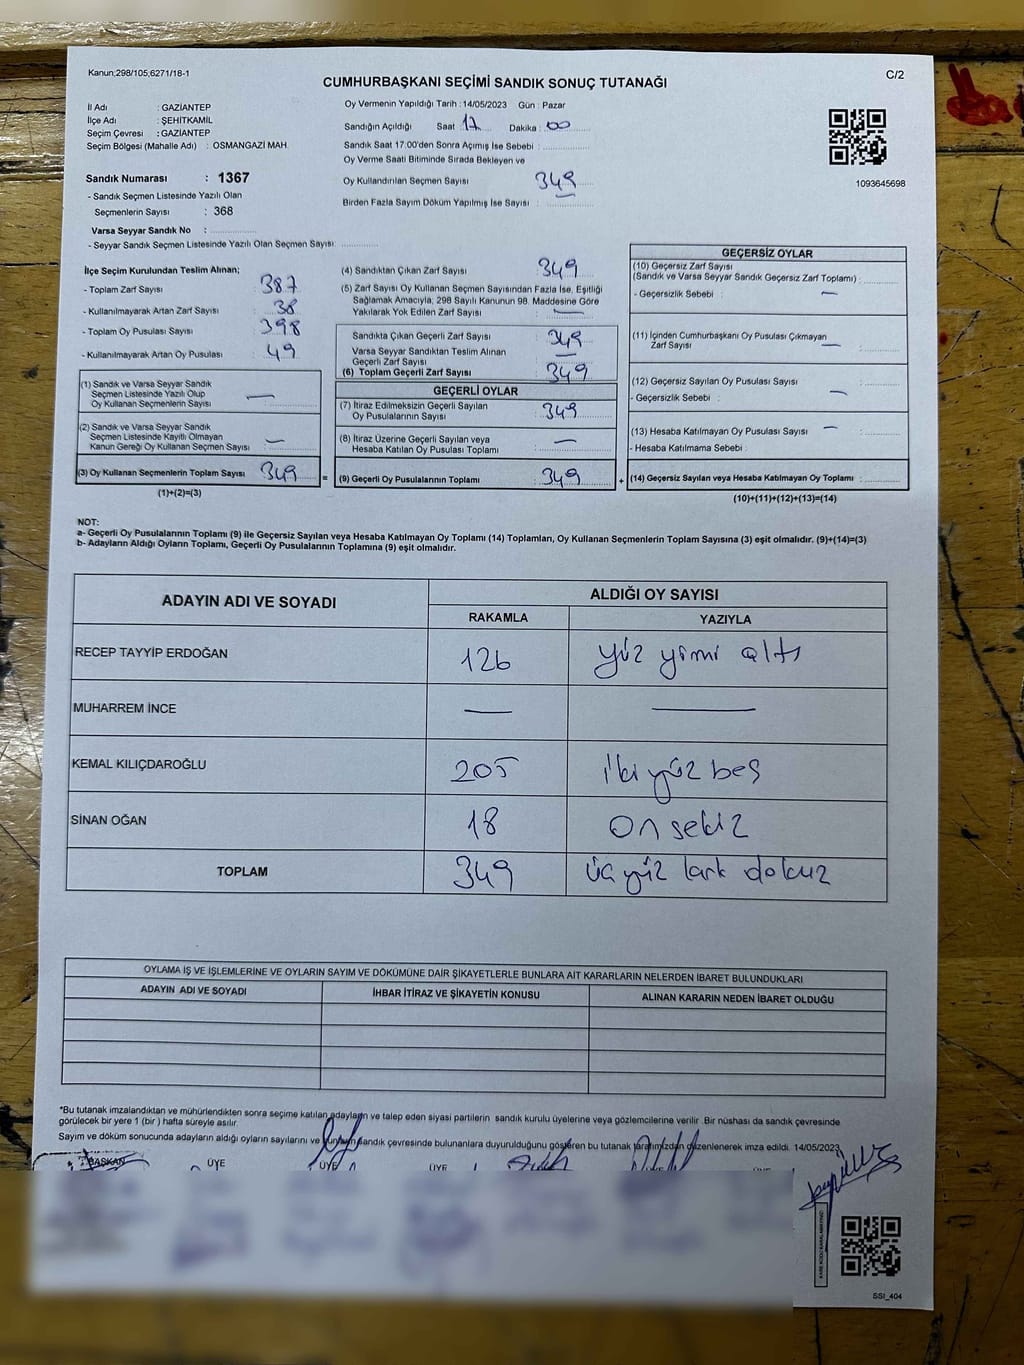 Kanun;298/105,6271/18-1
C/2
CUMHURBAŞKANI SEÇİMİ SANDIK SONUÇ TUTANAĞI
İl Adı : GAZİANTEP
İlçe Adı : ŞEHİTKAMİL
Seçim Çevresi : GAZİANTEP
Seçim Bölgesi (Mahalle Adı) : OSMANGAZİ MAH.
Sandık Numarası : 1367
- Sandık Seçmen Listesinde Yazılı Olan
Seçmenlerin Sayısı : 368
Varsa Seyyar Sandık No :
- Seyyar Sandık Seçmen Listesinde Yazılı Olan Seçmen Sayısı:
Oy Vermenin Yapıldığı Tarih : 14/05/2023 Gün : Pazar
Sandığın Açıldığı Saat 17 Dakika : 00
Sandık Saat 17:00'den Sonra Açımış İse Sebebi :
Oy Verme Saati Bitiminde Sırada Bekleyen ve
Oy Kullandırılan Seçmen Sayısı 349
Birden Fazla Sayım Döküm Yapılmış İse Sayısı :
1093645698
İlçe Seçim Kurulundan Teslim Alınan;
- Toplam Zarf Sayısı : 387
- Kullanılmayarak Artan Zarf Sayısı : 38
- Toplam Oy Pusulası Sayısı : 398
- Kullanılmayarak Artan Oy Pusulası : 49
(1) Sandık ve Varsa Seyyar Sandık
Seçmen Listesinde Yazılı Olup
Oy Kullanan Seçmenlerin Sayısı : —
(2) Sandık ve Varsa Seyyar Sandık
Seçmen Listesinde Kayıtlı Olmayan
Kanun Gereği Oy Kullanan Seçmen Sayısı : —
(3) Oy Kullanan Seçmenlerin Toplam Sayısı 349
(1)+(2)=(3)
(4) Sandıktan Çıkan Zarf Sayısı : 349
(5) Zarf Sayısı Oy Kullanan Seçmen Sayısından Fazla İse, Eşitliği
Sağlamak Amacıyla; 298 Sayılı Kanunun 98. Maddesine Göre
Yakılarak Yok Edilen Zarf Sayısı : —
Sandıkta Çıkan Geçerli Zarf Sayısı : 349
Varsa Seyyar Sandıktan Teslim Alınan
Geçerli Zarf Sayısı : —
(6) Toplam Geçerli Zarf Sayısı : 349
GEÇERLİ OYLAR
(7) İtiraz Edilmeksizin Geçerli Sayılan
Oy Pusulalarının Sayısı : 349
(8) İtiraz Üzerine Geçerli Sayılan veya
Hesaba Katılan Oy Pusulası Toplamı : —
= (9) Geçerli Oy Pusulalarının Toplamı : 349
GEÇERSİZ OYLAR
(10) Geçersiz Zarf Sayısı
(Sandık ve Varsa Seyyar Sandık Geçersiz Zarf Toplamı) :
- Geçersizlik Sebebi : —
(11) İçinden Cumhurbaşkanı Oy Pusulası Çıkmayan
Zarf Sayısı : —
(12) Geçersiz Sayılan Oy Pusulası Sayısı :
- Geçersizlik Sebebi : —
(13) Hesaba Katılmayan Oy Pusulası Sayısı : —
- Hesaba Katılmama Sebebi :
+ (14) Geçersiz Sayılan veya Hesaba Katılmayan Oy Toplamı :
(10)+(11)+(12)+(13)=(14)
NOT:
a- Geçerli Oy Pusulalarının Toplamı (9) ile Geçersiz Sayılan veya Hesaba Katılmayan Oy Toplamı (14) Toplamları, Oy Kullanan Seçmenlerin Toplam Sayısına (3) eşit olmalıdır. (9)+(14)=(3)
b- Adayların Aldığı Oyların Toplamı, Geçerli Oy Pusulalarının Toplamına (9) eşit olmalıdır.
ADAYIN ADI VE SOYADI
ALDIĞI OY SAYISI
RAKAMLA YAZIYLA
RECEP TAYYİP ERDOĞAN 126 yüz yirmi altı
MUHARREM İNCE — —
KEMAL KILIÇDAROĞLU 205 iki yüz beş
SİNAN OĞAN 18 On sekiz
TOPLAM 349 üç yüz kırk dokuz
OYLAMA İŞ VE İŞLEMLERİNE VE OYLARIN SAYIM VE DÖKÜMÜNE DAİR ŞİKAYETLERLE BUNLARA AİT KARARLARIN NELERDEN İBARET BULUNDUKLARI
ADAYIN ADI VE SOYADI İHBAR İTİRAZ VE ŞİKAYETİN KONUSU ALINAN KARARIN NEDEN İBARET OLDUĞU
*Bu tutanak imzalandıktan ve mühürlendikten sonra seçime katılan adayların ve talep eden siyasi partilerin sandık kurulu üyelerine veya gözlemcilerine verilir. Bir nüshası da sandık çevresinde
görülecek bir yere 1 (bir) hafta süreyle asılır.
Sayım ve döküm sonucunda adayların aldığı oyların sayılarını ve bunların sandık çevresinde bulunanlara duyurulduğunu gösteren bu tutanak tarafımızdan düzenlenerek imza edildi. 14/05/2023
BAŞKAN ÜYE ÜYE ÜYE
SSI_404